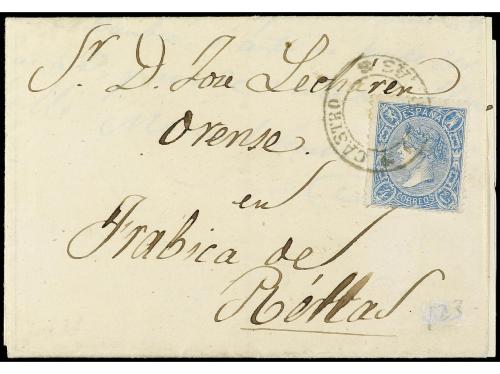 Sr. D. José Lecháren
Orense.
en
Frabica de
CASTRO
ESPAÑA
CORREOS
123